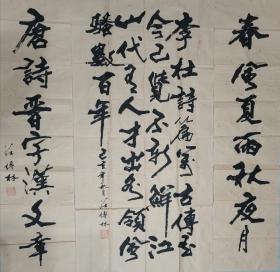 春風夏雨秋夜月
李杜詩篇萬古傳至
今已覺不新鮮江
山代有人才出各領風
騷數百年
唐詩晉字漢文章